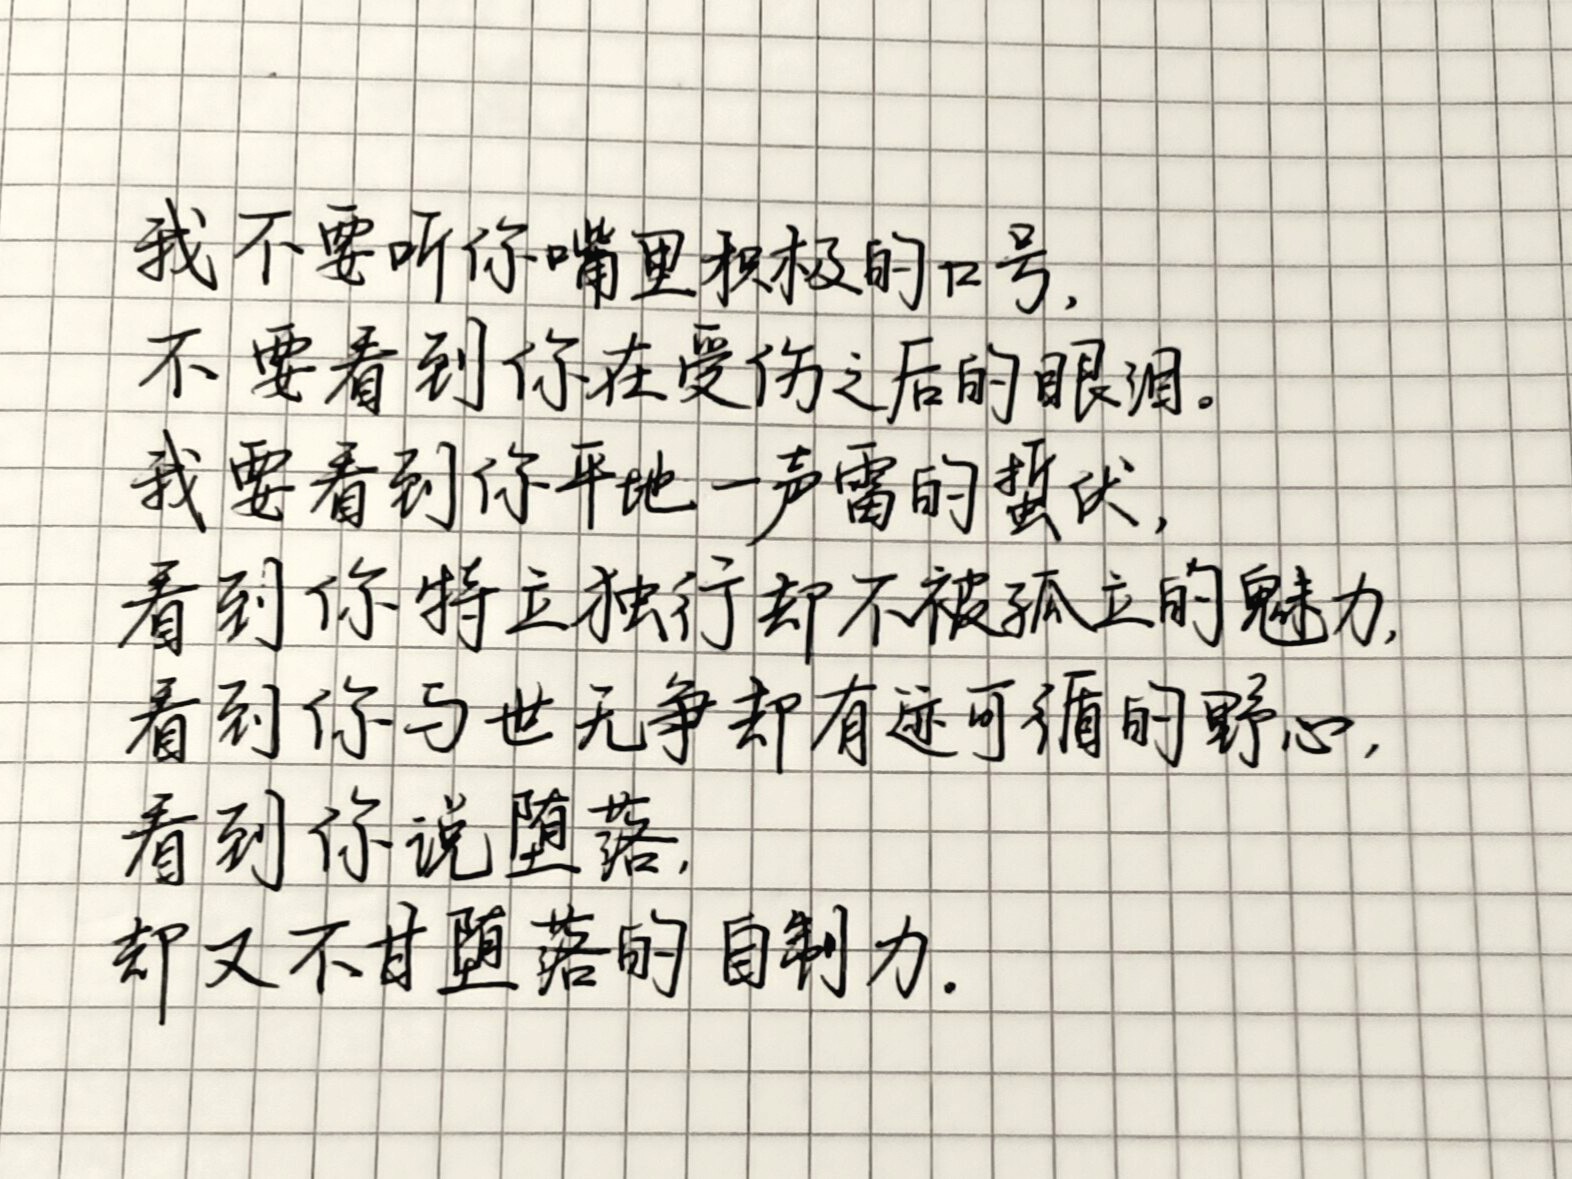 我不要听你嘴里积极的口号,
不要看到你在受伤之后的眼泪。
我要看到你平地一声雷的蜇伏,
看到你特立独行却不被孤立的魅力,
看到你与世无争却有迹可循的野心,
看到你说堕落,
却又不甘堕落的自制力.